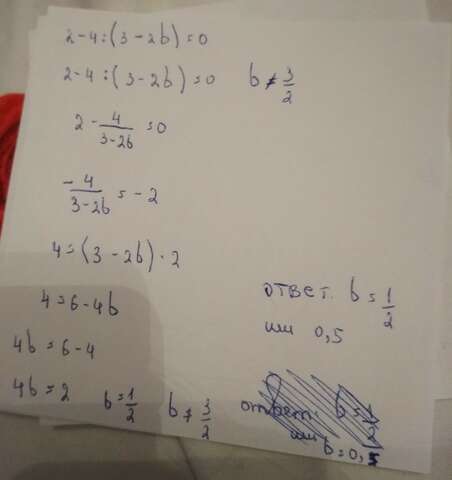 2-4:(3-2b)=0
2-4:(3-2b)=0 b≠3/2
2-4/(3-2b)=0
-4/(3-2b)=-2
4=(3-2b)·2
4=6-4b
4b=6-4
4b=2 b=1/2 b≠3/2
ответ. b=1/2
или 0,5
ответ. b=1/2
или b=0,5